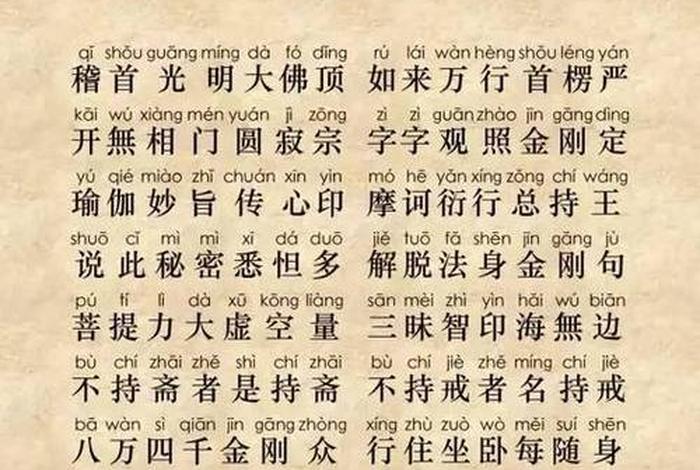 qī shǒu guāng míng dà fó dǐng rú lái wàn hèng shǒu léng yán
稽首光明大佛顶 如来万行首楞严
kāi wú xiàng mén yuán jì zōng zì zì guān zhào jīn gāng dìng
开無相门圆寂宗 字字观照金刚定
yú qié miào zhǐ chuán xīn yìn mó hē yǎn xíng zǒng chí wáng
瑜伽妙旨传心印 摩诃衍行总持王
shuō cǐ mì mì xī dá duō jiě tuō fǎ shēn jīn gāng jù
说此秘密悉怛多 解脱法身金刚句
pú tí lì dà xū kōng liàng sān mèi zhì yìn hǎi wú biān
菩提力大虚空量 三昧智印海無边
bù chí zhāi zhě shì chí zhāi bù chí jiè zhě míng chí jiè
不持斋者是持斋 不持戒者名持戒
bā wàn sì qiān jīn gāng zhòng xíng zhù zuò wò měi suí shēn
八万四千金刚众 行住坐卧每随身